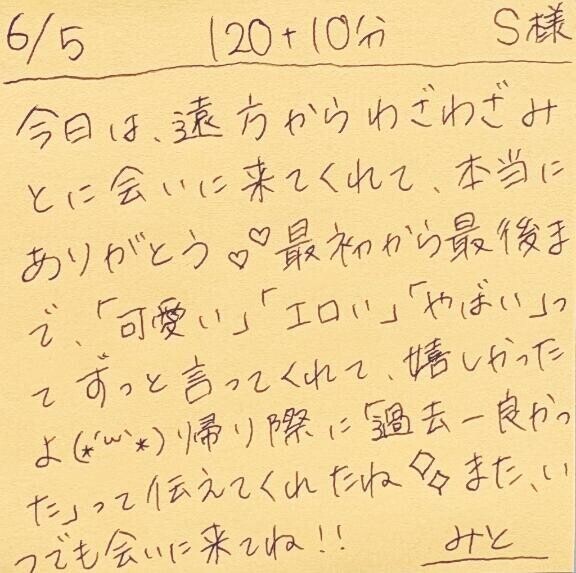 6/5 120+10分 S様
今日は、遠方からわざわざみ
とに会いに来てくれて、本当に
ありがとう♡♡最初から最後ま
で、「可愛い」「エロい」「やばい」っ
てずっと言ってくれて、嬉しかった
よ(*´ω`*)帰り際に「過去一良かっ
た」って伝えてくれたね◇◇また、い
つでも会いに来てね!!
みと